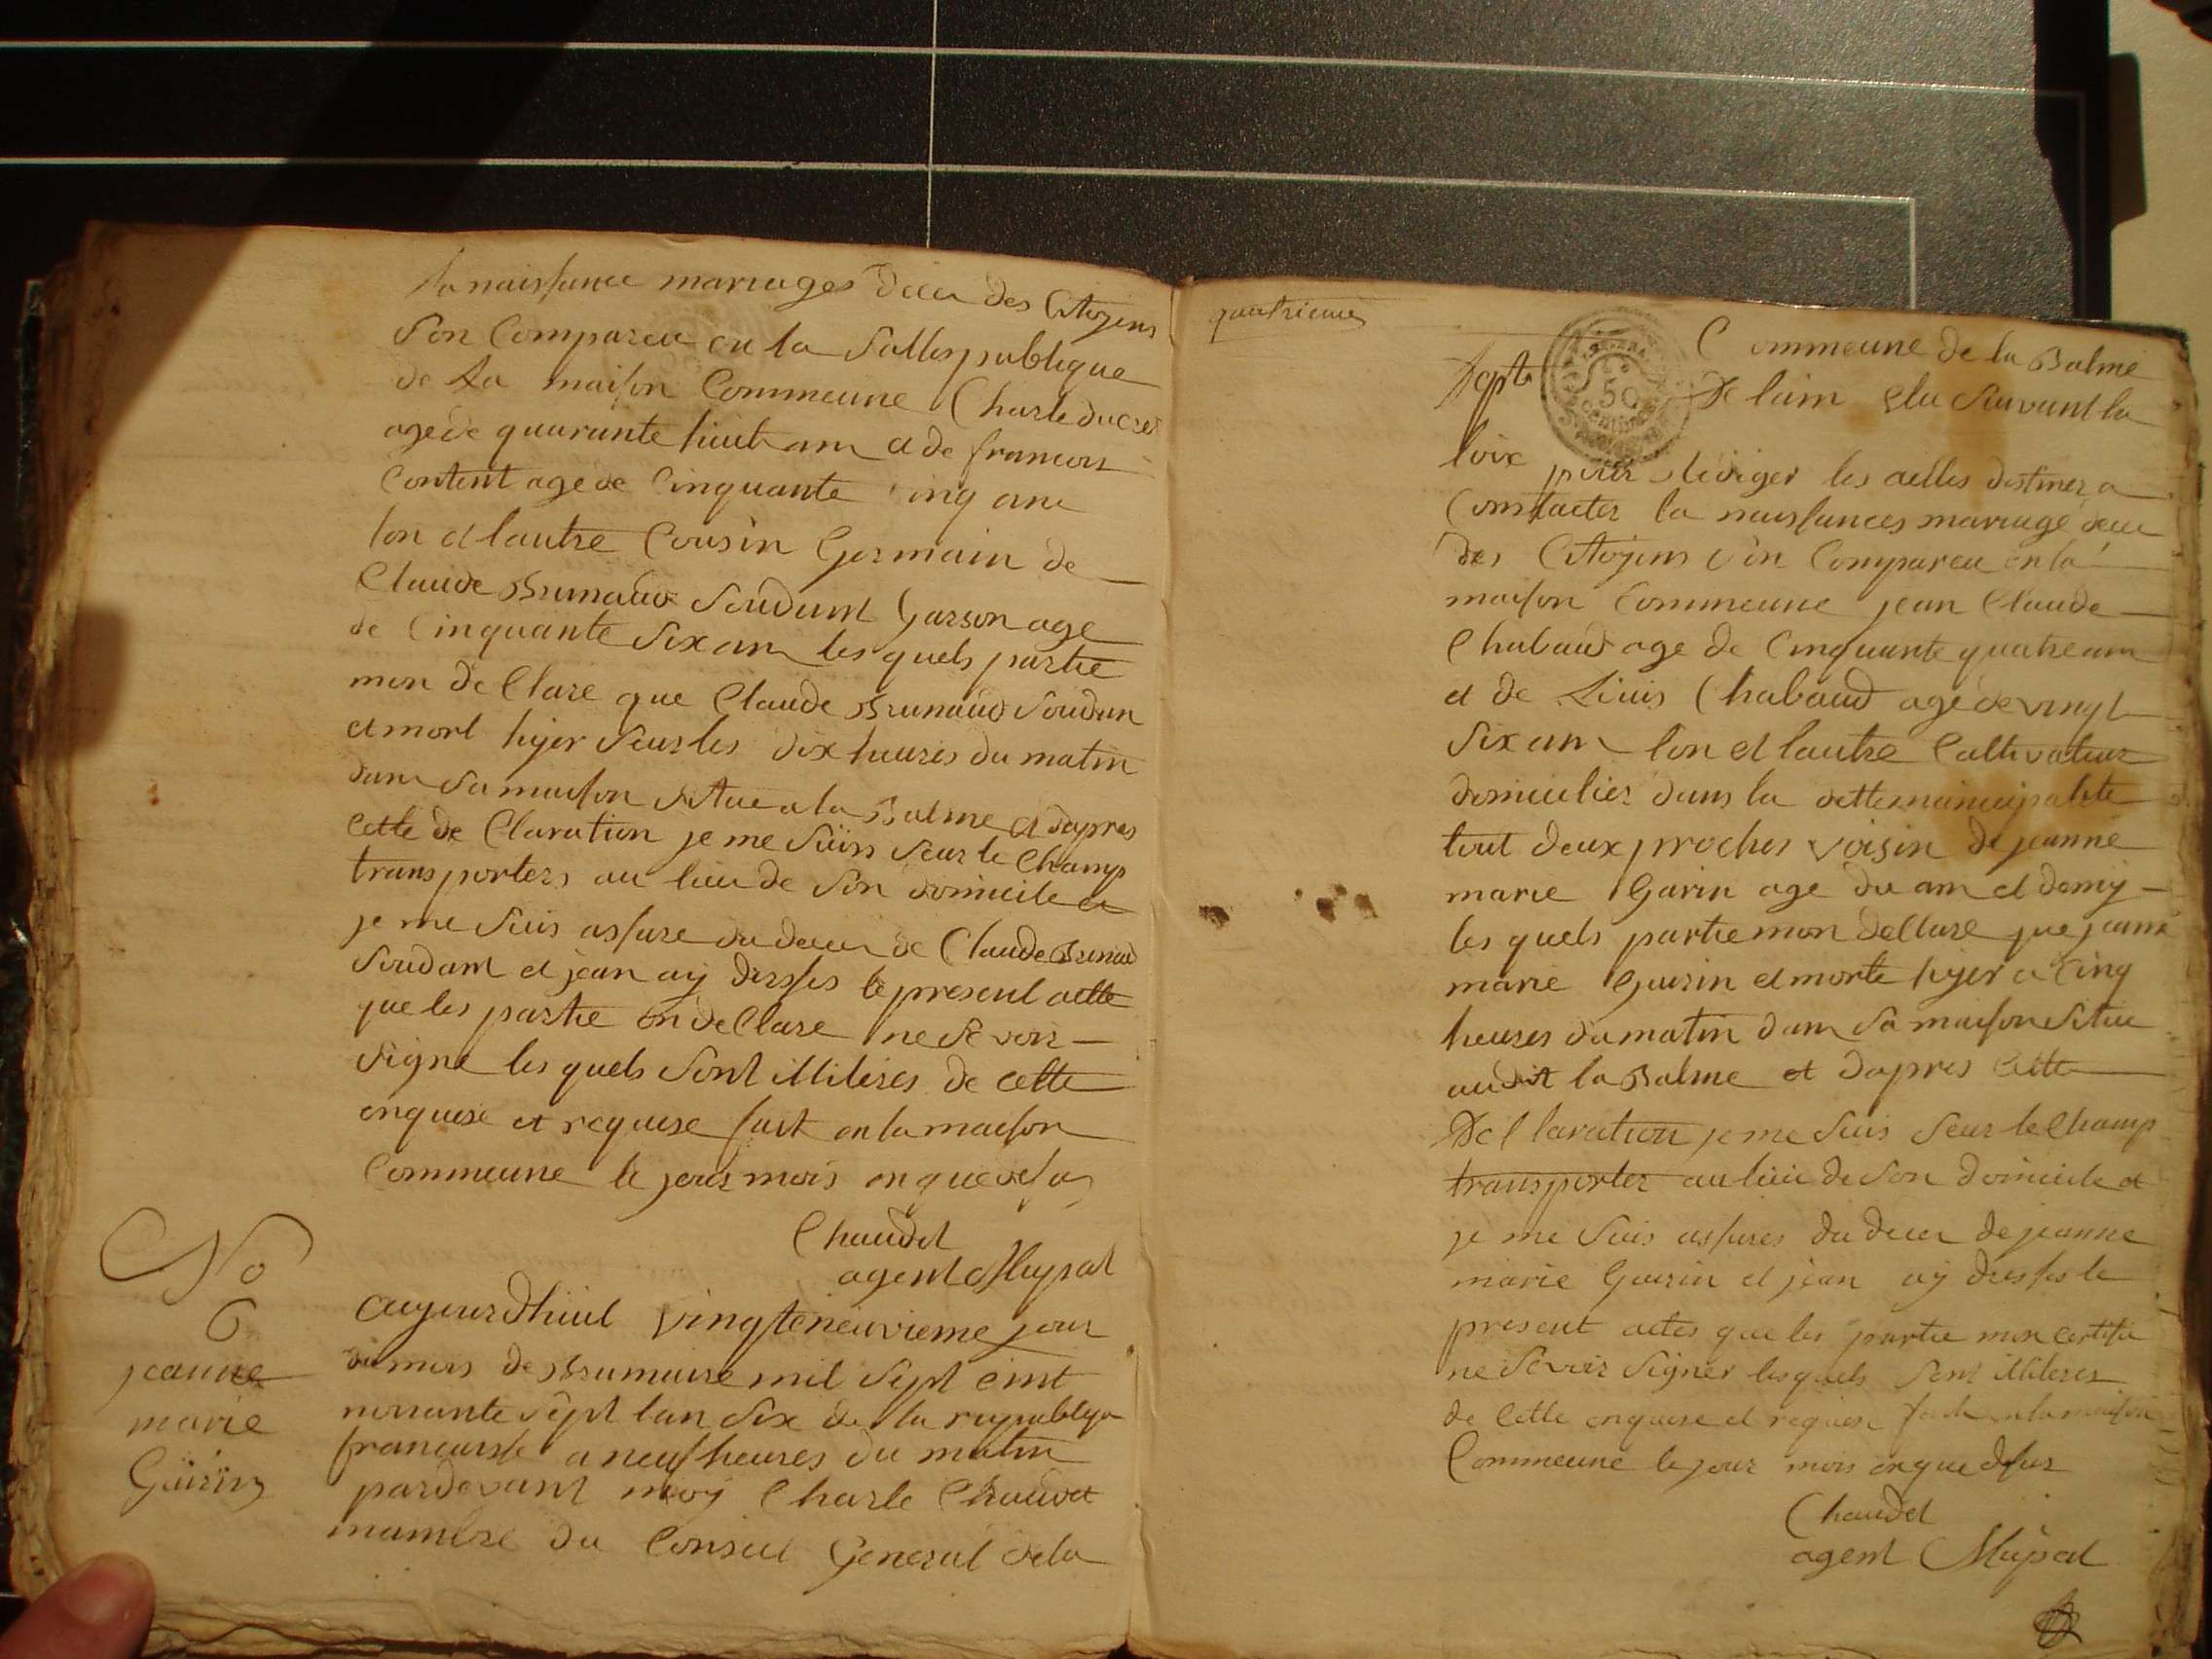 la naissance mariages deces des Citoyens
Son Compareu en la Salles publique
de La maison Commeune Charle ducret
age de quarante huit ans et de francois
Content age de Cinquante cinq ans
lon et lautre Cousin Germain de
Claude Brunaud Soudant Garson age
de Cinquante Six ans les quels partie
mon de Clare que Claude Brunaud Soudan
et mort hyer Seur les dix heures du matin
dans Sa maison Situe a la Balme et dapres
Cette de Claration je me Suis Seur le Champ
transporters au lieu de Son domicile et
je me Suis assure du deces de Claude Brunaud
Soudant et jean ay dresses le present acttte
que les partie on de Clare ne Se voir
Signe les quels Sont illiteres de cette
enquise et requise fait en la maison
Commeune le jour mois en que desus
Chaudet
agent Mupal
No
6
jeanne
marie
Guirin
aujeurdhiuit vingteneuvieme jour
du mois de Brumaire mil Sept cent
nonante Sept lan Six de la republique
francaise a neuf heures du matin
pardevant moy Charle Chaudet
mambre du Conseil General de la
quatrieme
Dept
50
Centimes
Commeune de la Balme
De lain elu Suivant la
loix pour Rediger les acttes destinez a
Constacter la naissances mariage deces
des Citoyens Son Compareu en la
maison Commeune jean Claude
Chabaud age de Cinquante quatre ans
et de Liuis Chabaud age de vingt
Six ans lon et lautre Caltivateur
domicilier dans la dette municipalite
tout deux proches voisin de jeanne
marie Garin age du an et demy
les quels partie mon de Clare que jeanne
marie Guirin et morte hyer a Cinq
heures du matin dans Sa maison Situe
audit la Balme et dapres Cette
De Claration je me Suis Seur le Champ
transporter au lieu de Son domicile et
je me Suis assures du deces de jeanne
marie Guirin et jean ay dresses le
present actes que les partie mon certifie
ne Savoir Signer les quels Sont illiteres
de Cette enquise et requise fait en la maison
Commeune le jour mois en que desus
Chaudet
agent Mupal